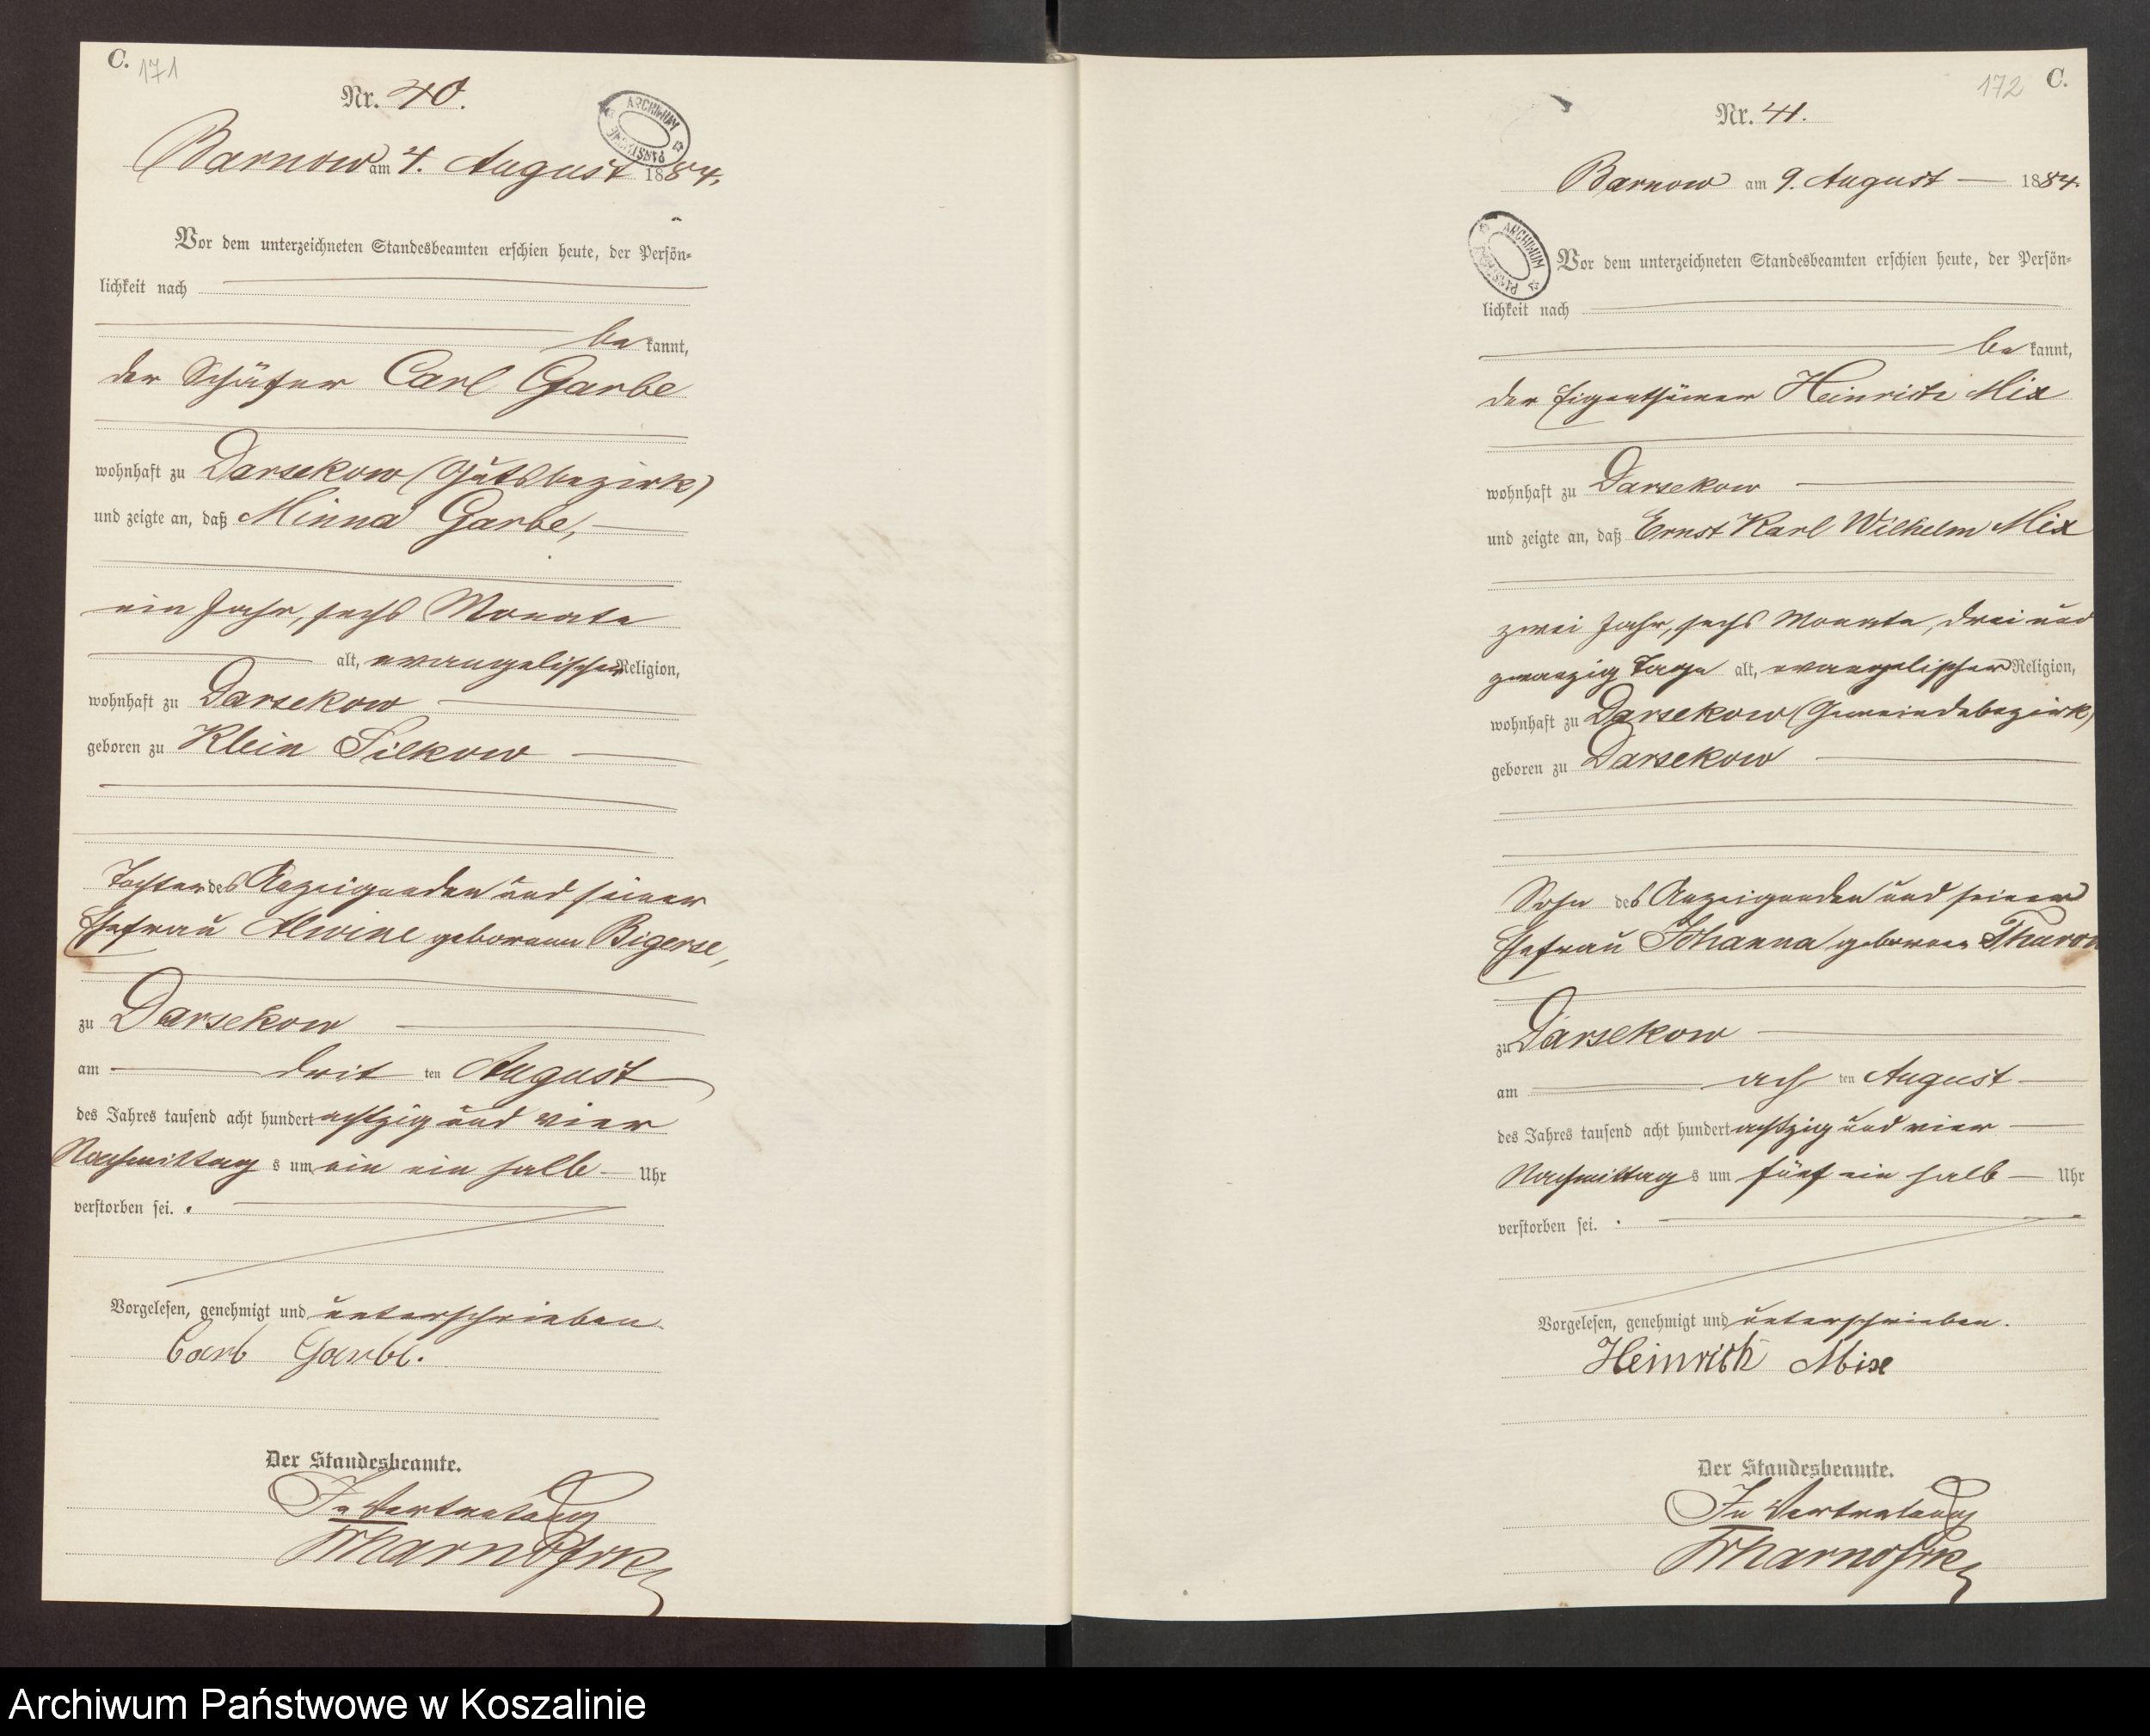 C. 171
Nr. 40.
ARCHIWUM PAŃSTWOWE
Barnow am 4. August 1884.
Vor dem unterzeichneten Standesbeamten erschien heute, der Persön-
lichkeit nach
be kannt,
der Schäfer Carl Garbe
wohnhaft zu Darsekow (Gutsbezirk)
und zeigte an, daß Minna Garbe,
ein Jahr, sechs Monate
alt, evangelischer Religion,
wohnhaft zu Darsekow
geboren zu Klein Silkow
Tochter des Anzeigenden und seiner
Ehefrau Alwine geborenen Bigerse,
zu Darsekow
am drit ten August
des Jahres tausend acht hundert achtzig und vier
Nachmittag s um ein ein halb Uhr
verstorben sei.
Vorgelesen, genehmigt und unterschrieben
Carl Garbe.
Der Standesbeamte.
In Vertretung
172 C.
Nr. 41.
Barnow am 9. August 1884.
ARCHIWUM PAŃSTWOWE
Vor dem unterzeichneten Standesbeamten erschien heute, der Persön-
lichkeit nach
be kannt,
der Eigenthümer Heinrich Mix
wohnhaft zu Darsekow
und zeigte an, daß Ernst Karl Wilhelm Mix
zwei Jahr, sechs Monate, drei und
zwanzig Tage alt, evangelischer Religion,
wohnhaft zu Darsekow (Gemeindebezirk)
geboren zu Darsekow
Sohn des Anzeigenden und seiner
Ehefrau Johanna geborenen Thurow
zu Darsekow
am ach ten August
des Jahres tausend acht hundert achtzig und vier
Nachmittag s um fünf ein halb Uhr
verstorben sei.
Vorgelesen, genehmigt und unterschrieben.
Heinrich Mix
Der Standesbeamte.
In Vertretung
Archiwum Państwowe w Koszalinie